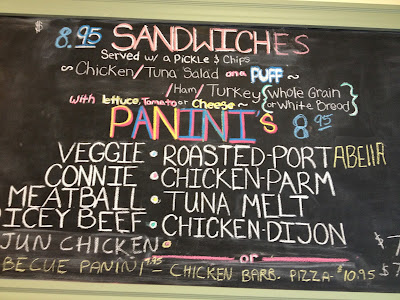 $ 8.95 SANDWICHES
Served w/ a Pickle & Chips
~ Chicken/Tuna Salad on a PUFF ~
/Ham/Turkey {Whole Grain or White Bread}
with lettuce, Tomato or Cheese ~
PANINI's 8.95
VEGGIE • ROASTED-PORTABELLA
CONNIE • CHICKEN-PARM
MEATBALL • TUNA MELT
ICEY BEEF • CHICKEN-DIJON
JUN CHICKEN • $7
or
BECUE PANINI 7.95 - CHICKEN BARB. PIZZA - $10.95 $7